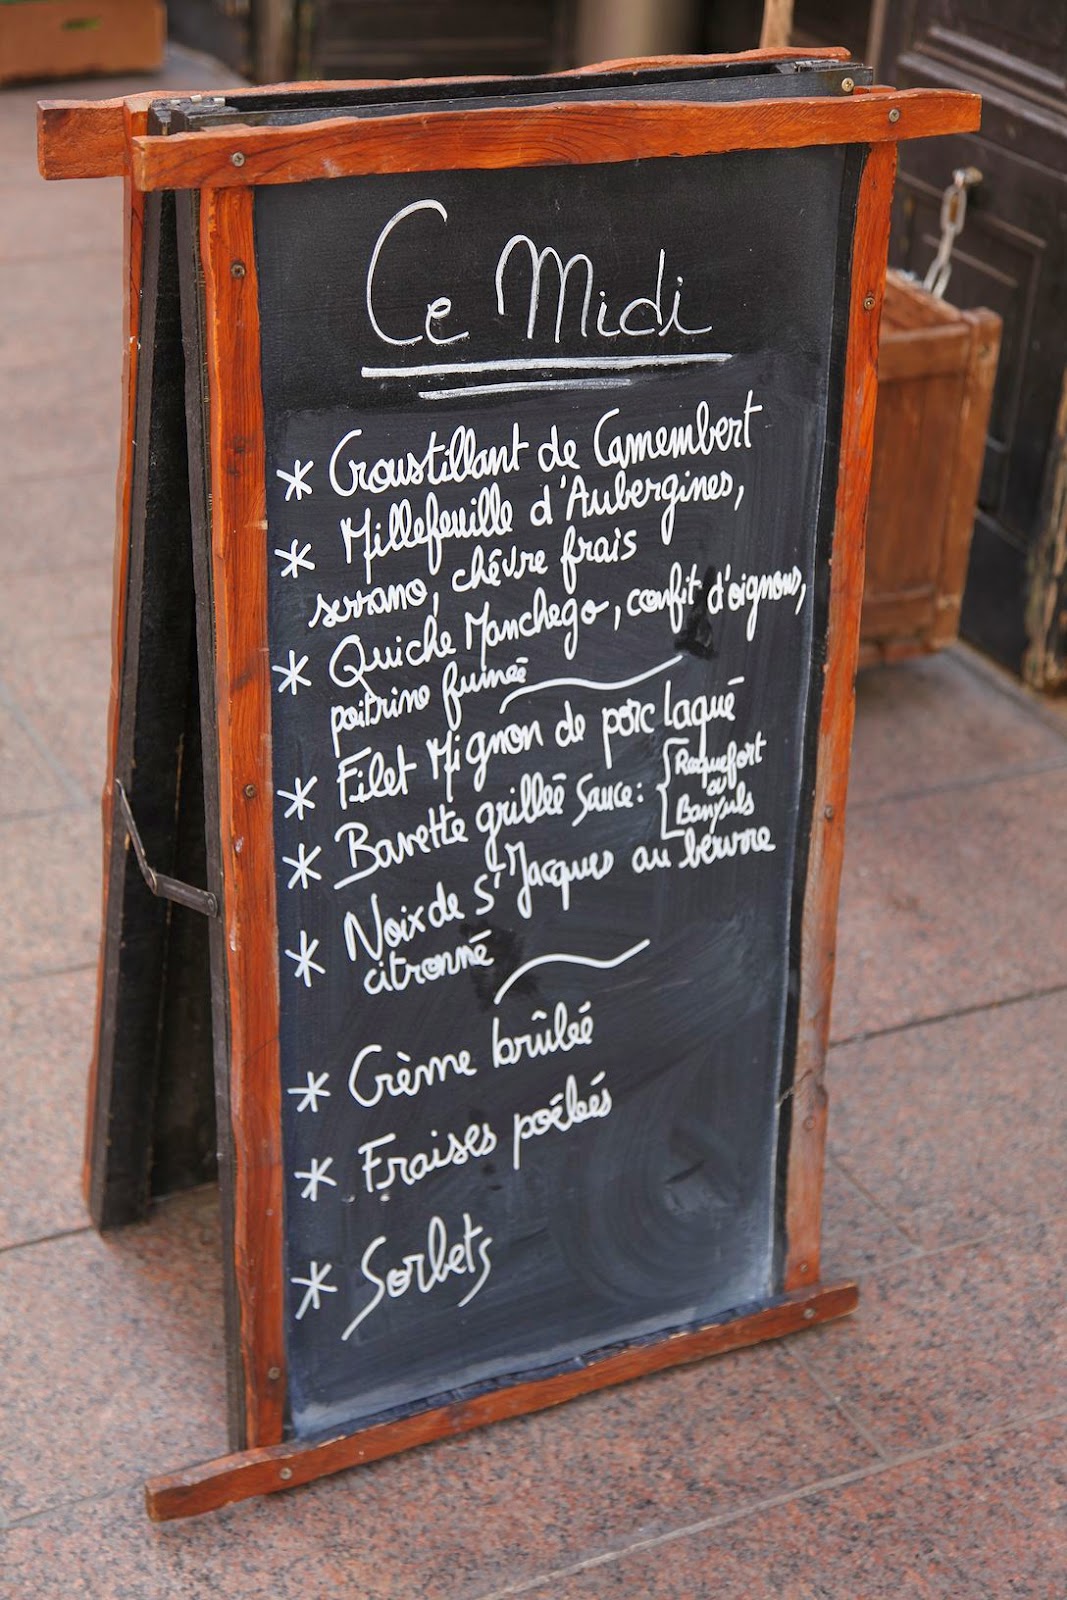 Ce Midi
* Croustillant de Camembert
* Millefeuille d'Aubergines,
serrano, chévre frais
* Quiche Manchego, confit d'oignons,
poitrine fumée
* Filet Mignon de porc laqué
* Bavette grillée Sauce: Roquefort
ou
Banyuls
* Noix de St Jacques au beurre
citronné
* Crème brûlée
* Fraises poélées
* Sorbets